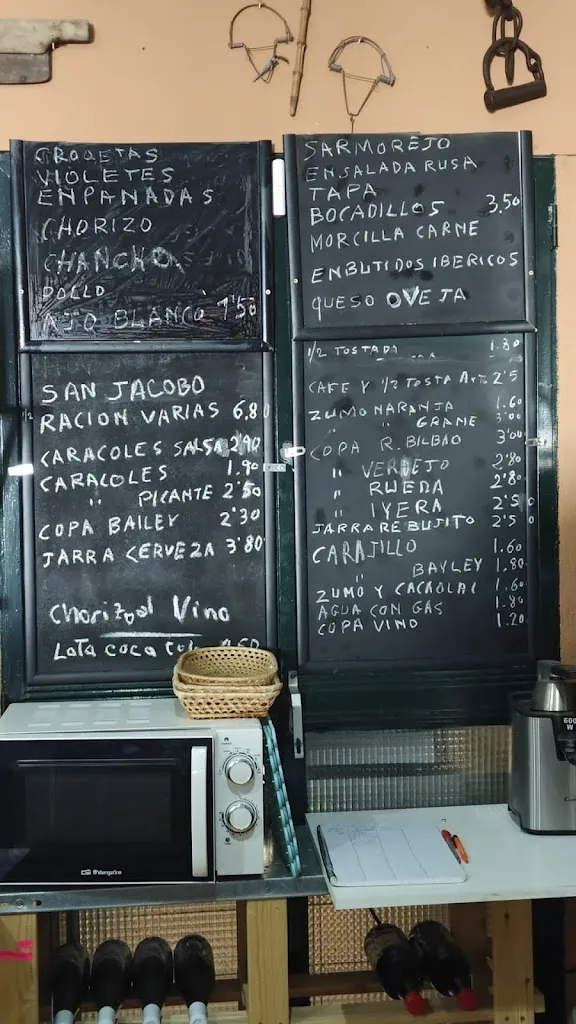 CROQUETAS
VIOLETES
ENPANADAS
CHORIZO
CHANCHO
POLLO
AJO BLANCO 1'50
SAN JACOBO
RACION VARIAS 6.80
CARACOLES SALSA 2'90
CARACOLES 1.90
" PICANTE 2'50
COPA BAILEY 2'30
JARRA CERVEZA 3'80
Chorizo al Vino
Lata coca
SARMOREJO
ENSALADA RUSA
TAPA
BOCADILLOS 3.50
MORCILLA CARNE
ENBUTIDOS IBERICOS
QUESO OVEJA
1/2 TOSTADA 1.80
CAFE Y 1/2 TOSTA 2'5
ZUMO NARANJA 1.60
" " GRANE 3'00
COPA R. BILBAO 3'00
" VERDEJO 2'80
" RUEDA 2'80
" IYERA 2'50
JARRA REBUJITO 2'50
CARAJILLO 1.60
" BAYLEY 1.80
ZUMO Y CACAOLAT 1.60
AGUA CON GAS 1.80
COPA VINO 1.20
Orbegozo
600
W